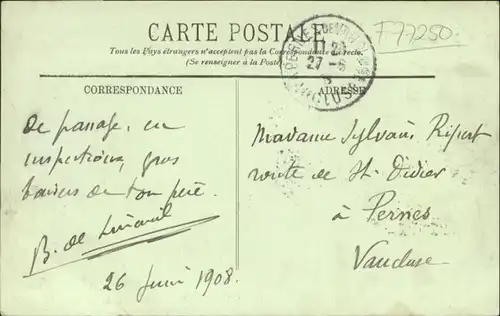 CARTE POSTALE
F77250
Tous les Pays étrangers n'acceptent pas la Correspondance au recto.
(Se renseigner à la Poste)
27-6
VAUCLUSE
CORRESPONDANCE
De passage, en
inspections, gros
baisers de ton père.
B. de
26 Juin 1908.
ADRESSE
Madame Sylvain Ripert
route de St. Didier
à Pernes
Vaucluse